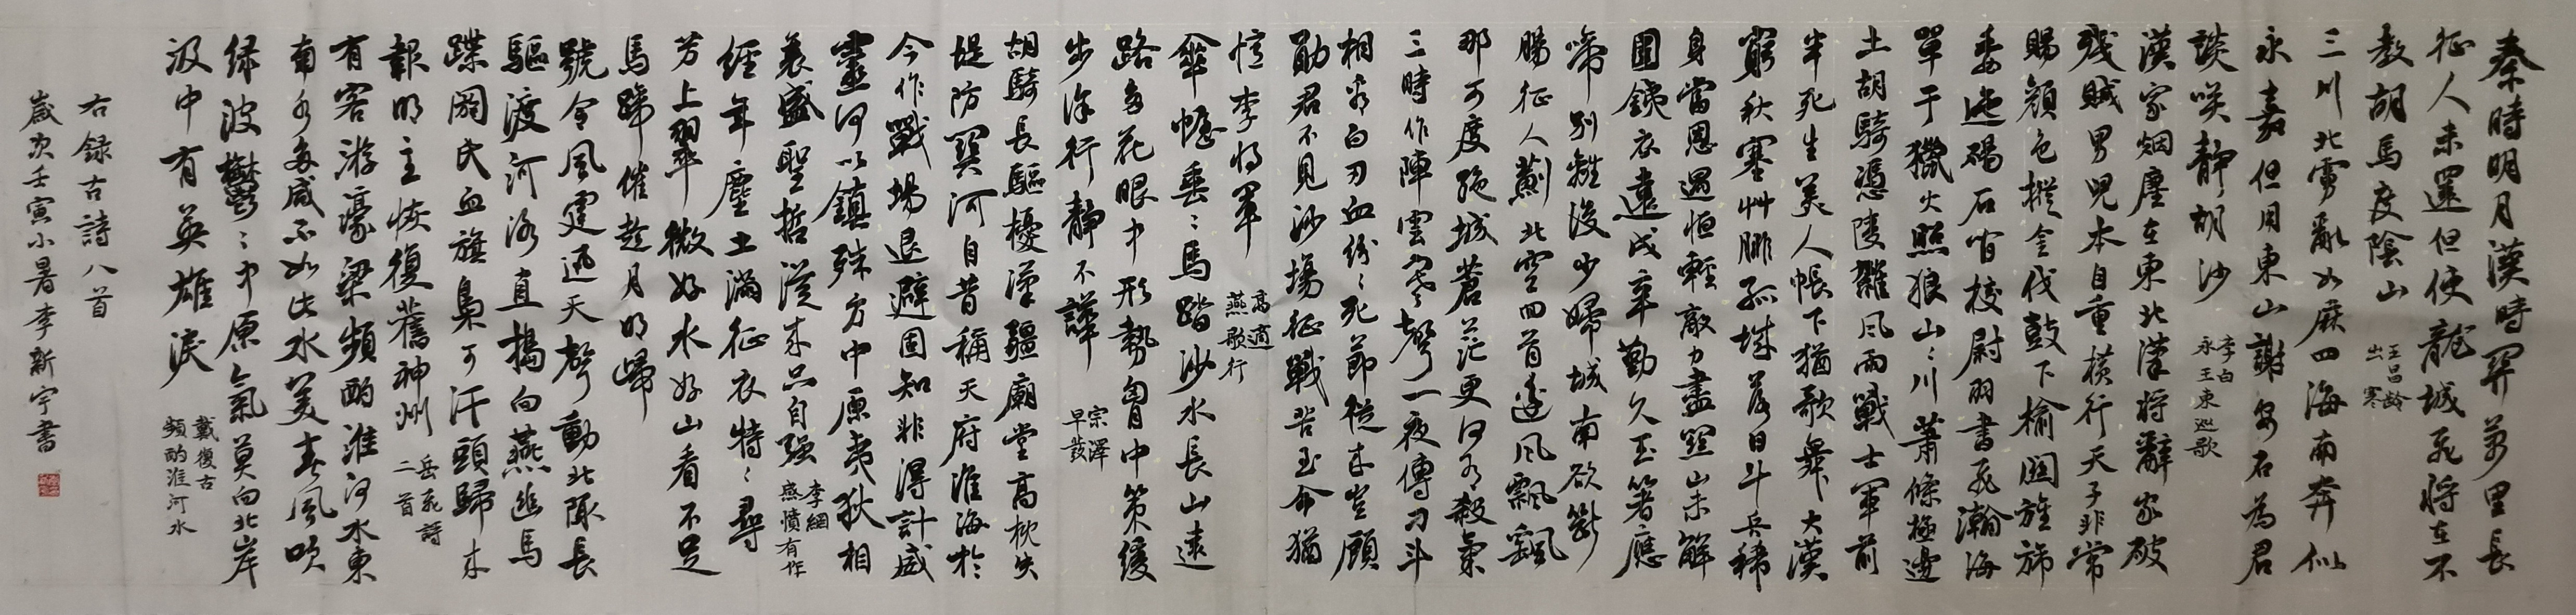 秦時明月漢時關萬里長
征人未還但使龍城飛將在不
教胡馬度陰山
王昌齡
出塞
三川北虜亂如麻四海南奔似
永嘉但用東山謝安石為君
談咲靜胡沙
李白
永王東巡歌
漢家烟塵在東北漢將辭家破
殘賊男兒本自重橫行天子非常
賜顏色摐金伐鼓下榆關旌旆
委迤碣石間校尉羽書飛瀚海
單于獵火照狼山〻川蕭條極邊
土胡騎憑陵雜風雨戰士軍前
半死生美人帳下猶歌舞大漠
窮秋塞艸腓孤城落日斗兵稀
身當恩遇恒輕敵力盡關山未解
圍鐵衣遠戍辛勤久玉箸應
啼別離後少婦城南欲斷
腸征人薊北空回首邊風飄飄
那可度絕域蒼茫更何有殺氣
三時作陣雲寒聲一夜傳刁斗
相看白刃血紛〻死節從來豈顧
勛君不見沙場征戰苦至今猶
憶李將軍
高適
燕歌行
傘幄垂〻馬踏沙水長山遠
路多花眼中形勢胷中策緩
步徐行靜不譁
宗澤
早發
胡騎長驅擾漢疆廟堂高枕失
堤防關河自昔稱天府淮海於
今作戰場退避固知非得計威
靈何以鎮殊方中原夷狄相
衰盛聖哲從來只自强
李綱
感憤有作
經年塵土滿征衣特〻尋
芳上翠微好水好山看不足
馬蹄催趁月明歸
號令風霆迅天聲動北陬長
驅渡河洛直搗向燕幽馬
蹀閼氏血旗梟可汗頭歸來
報明主恢復舊神州
岳飛詩
二首
有客游濠梁頻酌淮河水東
南水多咸不如此水美春風吹
緑波鬱〻中原氣莫向北岸
汲中有英雄淚
戴復古
頻酌淮河水
右録古詩八首
歲次壬寅小暑李新宇書